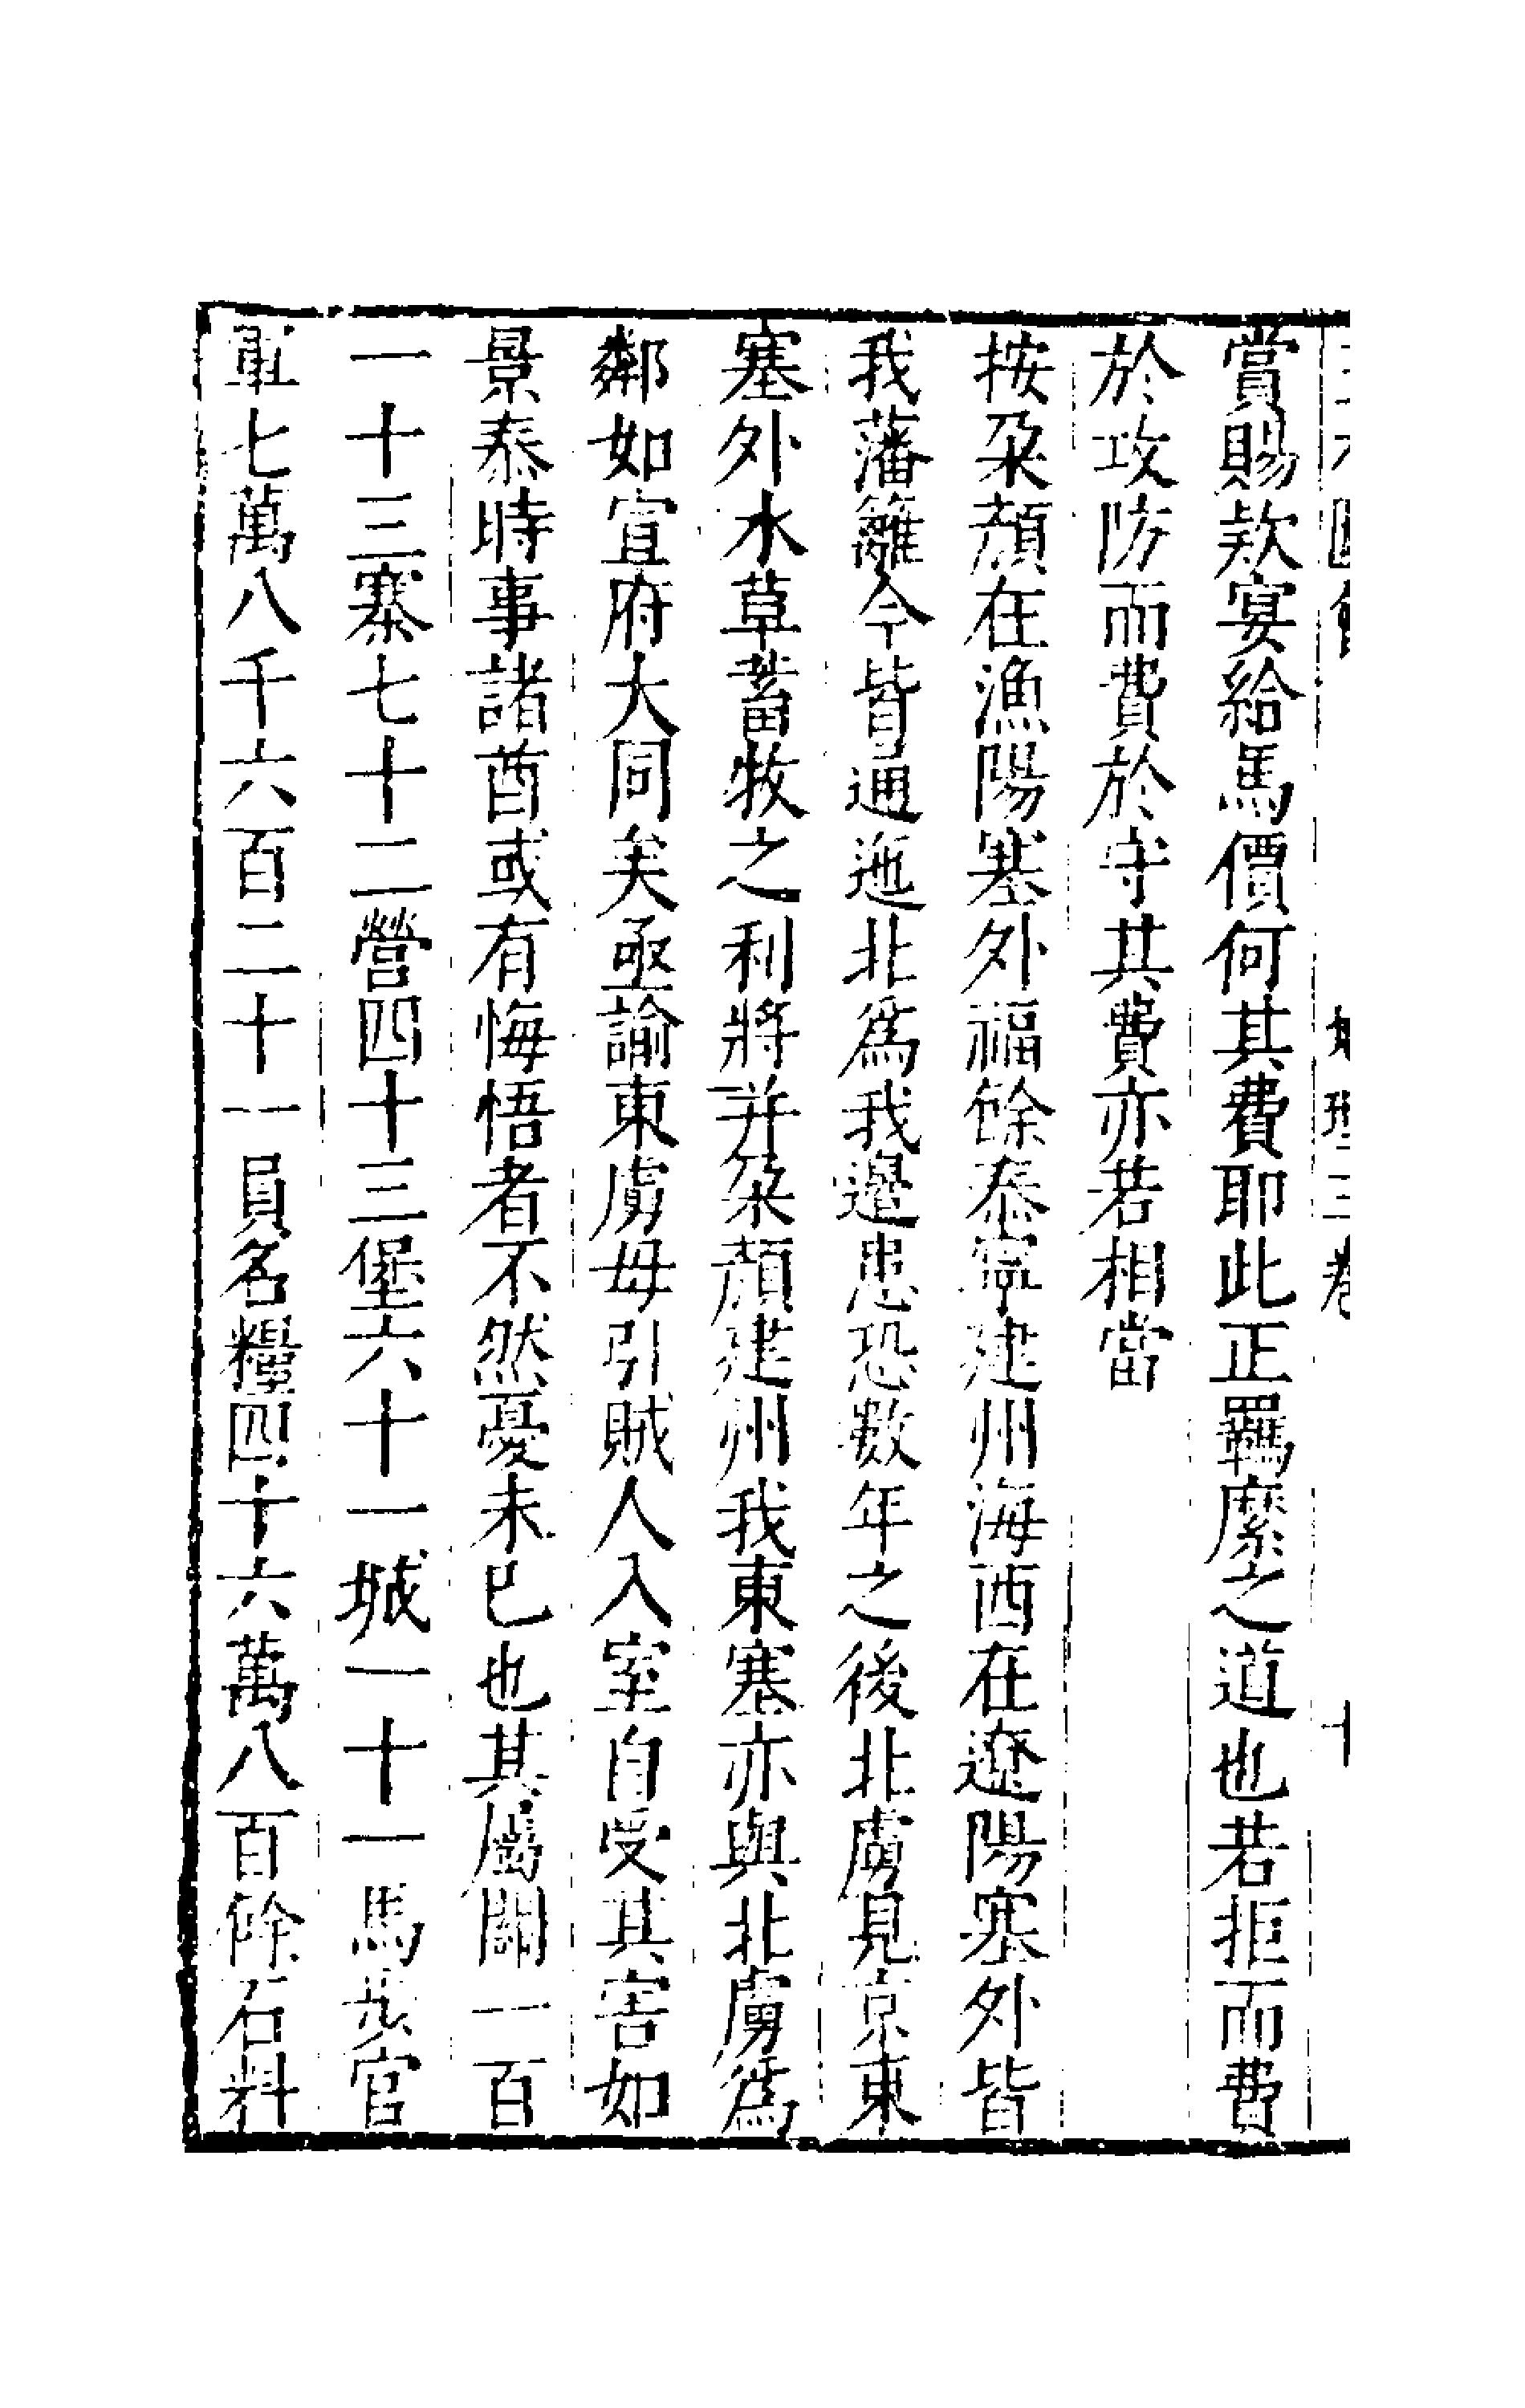 地理三卷
十
賞賜欵宴給馬價何其費耶此正羈縻之道也若拒而費
於攻防而費於守其費亦若相當
按朶顏在漁陽塞外福餘泰寧建州海西在遼陽塞外皆
我藩籬今皆通迤北爲我邊患恐數年之後北虜見京東
塞外水草蓄牧之利將并朶顏建州我東塞亦與北虜爲
鄰如宣府大同矣亟諭東虜毋引賊人入室自受其害如
景泰時事諸酋或有悔悟者不然憂未已也其屬關一百
一十三寨七十二營四十三堡六十一城一十一馬步官
軍七萬八千六百二十一員名糧四十六萬八百餘石料